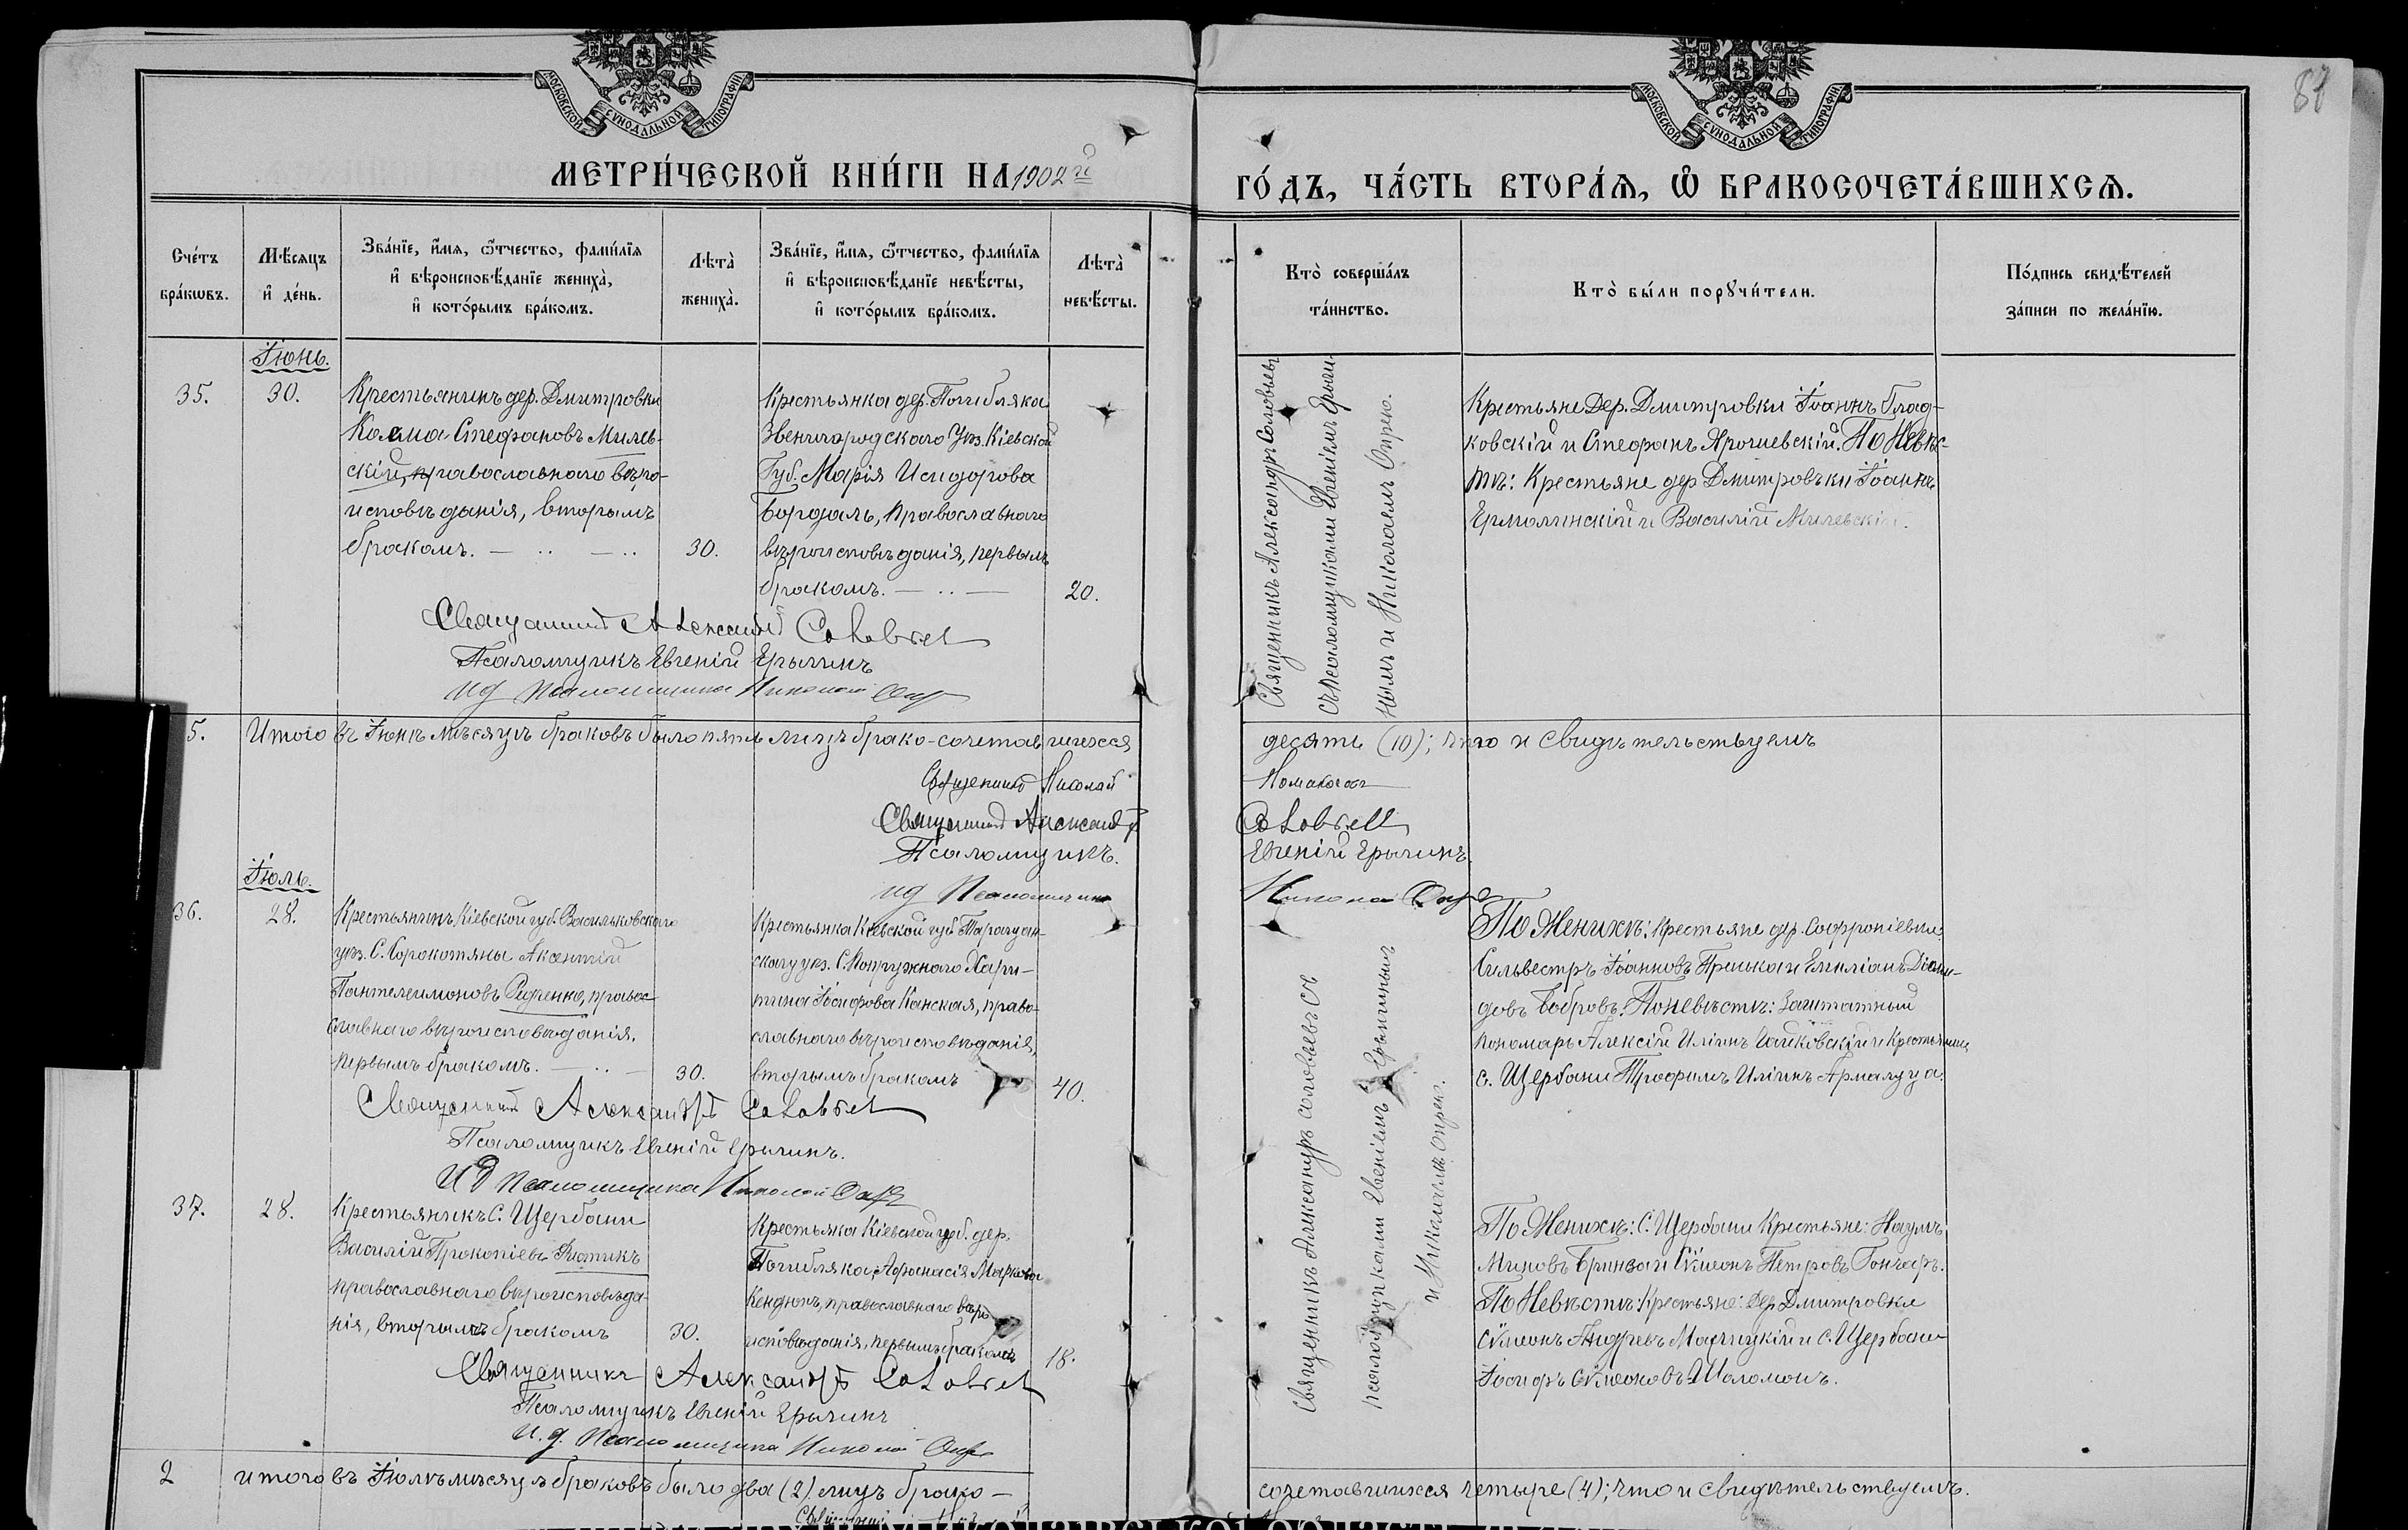 81
МОСКОВСКОЙ СѴНОДАЛЬНОЙ ТИПОГРАФІИ
МОСКОВСКОЙ СѴНОДАЛЬНОЙ ТИПОГРАФІИ
МЕТРИ́ЧЕСКОЙ КНИ́ГИ НА 1902 й
ГО́ДЪ, ЧА́СТЬ ВТОРА́Ѧ, Ѽ БРАКОСОЧЕТА́ВШИХСѦ.
Сче́тъ бра́кѡвъ.
Мѣ́сѧцъ и҆ де́нь.
Зва́нїе, и҆́мѧ, ѻ҆́тчество, фами́лїѧ
и҆ вѣроисповѣ́данїе жениха̀,
и҆ кото́рымъ бра́комъ.
Лѣта̀ жениха̀.
Зва́нїе, и҆́мѧ, ѻ҆́тчество, фами́лїѧ
и҆ вѣроисповѣ́данїе невѣ́сты,
и҆ кото́рымъ бра́комъ.
Лѣта̀ невѣ́сты.
Кто̀ соверша́лъ
та́инство.
Кто̀ бы́ли порꙋчи́тели.
По́дпись свидѣ́телей
за́писи по жела́нїю.
Іюнь.
35.
30.
Крестьянинъ дер. Дмитровки
Косма Стефановъ Милев-
скій, православнаго вѣро-
исповѣданія, вторымъ
бракомъ.
30.
Крестьянка дер. Погибляка
Звенигородскаго Уѣз. Кіевской
Губ. Марія Исидорова
Бородаль, православнаго
вѣроисповѣданія, первымъ
бракомъ.
20.
Священникъ Александръ Соловьевъ
съ псаломщиками Евгеніемъ Ерыги-
нымъ и Николаемъ Опрею.
Крестьяне Дер. Дмитровки Іоаннъ Глад-
ковскій и Стефанъ Ярошевскій. По Невѣс-
тѣ: Крестьяне дер Дмитровъки Іоаннъ
Ермолинскій и Василій Милевскій.
Священникъ Александръ Соловьевъ
Псаломщикъ Евгеній Ерыгинъ
ид псаломщика Николай Опря
5.
Итого въ Іюнѣ мѣсяцѣ браковъ было пять лицъ брако-сочетавшихся
десять (10); что и свидѣтельствуемъ
Священникъ Николай
Священникъ Александръ
Соловьевъ
Псаломщикъ.
Евгеній Ерыгинъ.
ид Псаломщика
Николай Опря
Іюль.
36.
28.
Крестьянинъ Кіевской губ. Васильковскаго
уѣз. С. Сорокотяны Акентій
Пантелеимоновъ Редченко, правос-
славнаго вѣроисповѣданія,
первымъ бракомъ.
30.
Крестьянка Кіевской губ. Таращан-
скагу уѣз. С. Попружнаго Хари-
тина Іосифова Канская, право-
славнаго вѣроисповѣданія,
вторымъ бракомъ
40.
Священникъ Александръ Соловьевъ съ
псаломщиками Евгеніемъ Ерыгинымъ
и Николаемъ Опрею.
По Женихѣ: Крестьяне дер. Софроніевки
Сильвестръ Іоанновъ Прицька и Емиліанъ Діоми-
довъ Бобровъ. По невѣстѣ: Заштатный
Пономарь Алексій Иліинъ Чайковскій и Крестьянинъ
с. Щербани Трофимъ Иліинъ Армалуца.
Священникъ Александръ Соловьевъ
Псаломщикъ Евгеній Ерыгинъ.
ИД Псаломщика Николай Опря
37.
28.
Крестьянинъ С. Щербани
Василій Прокопіевъ Яютикъ
православнаго вѣроисповѣда-
нія, вторымъ бракомъ
30.
Крестьяка Кіевской губ. дер.
Погибляка, Афанасія Маркова
Кендюхъ, православнаго вѣро
исповѣданія, первымъ бракомъ
18.
По Женихѣ: С. Щербани Крестьяне: Наумъ
Миновъ Бринза и Сѵмеонъ Петровъ Гончаръ.
По Невѣстѣ: Крестьяне: Дер Дмитровки
Сѵмеонъ Андреевъ Марицкій и С. Щербани
Іосифъ Сѵмеоновъ Шоломонъ.
Священникъ Александръ Соловьевъ
Псаломщикъ Евгеній Ерыгинъ
И. д. Псаломщика Николай Опря
2
итого въ Іюлѣ мѣсяцѣ браковъ было два (2) лицъ брако-
сочетавшихся четыре (4); что и свидѣтельствуемъ.